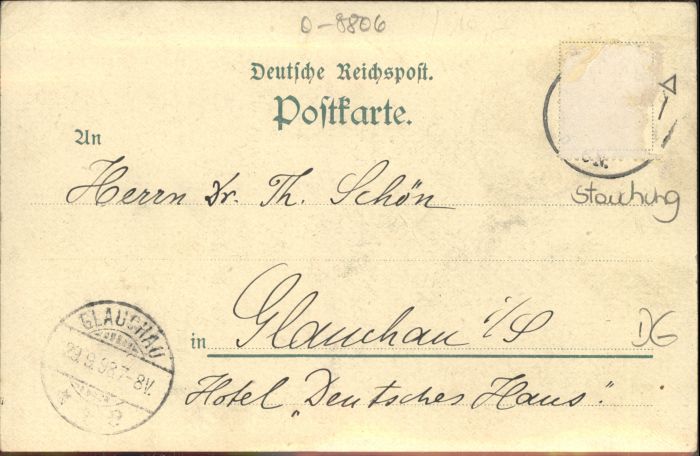 D-8806
Deutsche Reichspost.
Postkarte.
An
Herrn Dr. Th. Schön
Stauchung
in Glauchau i/S
DG
Hotel „Deutsches Haus".
GLAUCHAU
29.9.98.7-8V.